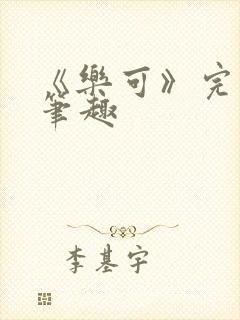 《樂可》完
筆趣
李基宇